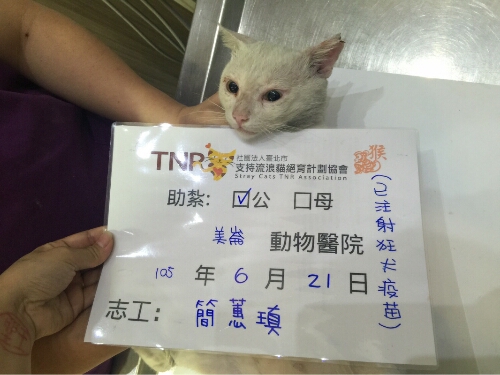 TNR 社團法人臺北市
支持流浪貓絕育計劃協會
Stray Cats TNR Association
助紮: ☑公 ☐母
美崙 動物醫院
105 年 6 月 21 日
志工: 簡蕙瑱
(已注射狂犬疫苗)